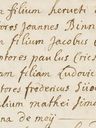 m filium herueti
tores Joannes Binn
m filium Jacobus
tores paulus Cries
am filiam Ludovic
tores fredericus
lium mathei Sime
na de meij